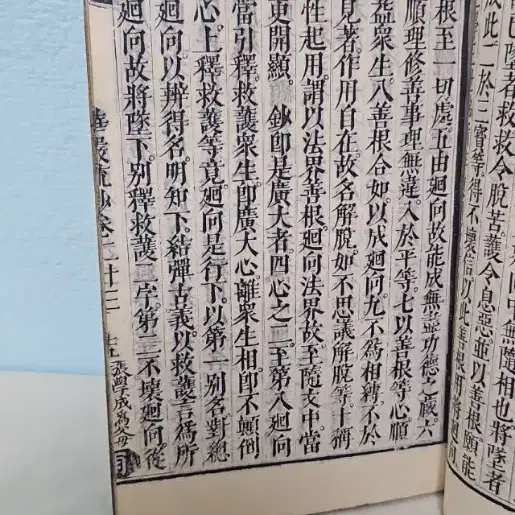 已墜者救救令脫苦護令息惡並以善根願能
此二於三寶等得不壞信以此善根
中無隨相也將墜者
根至一切處五由廻向故能成無盡功德之藏六
順理修善事理無違入於平等七以善根等心順
益眾生八善根合如以成廻向九不爲相縛不於
見著作用自在故名解脫如不思議解脫等十稱
性起用謂以法界善根廻向法界故至隨文中當
更開顯。 鈔即是廣大者四心之二至第八廻向
當引釋救護眾生即廣大心離眾生相即不顛倒
心上釋救護等竟廻向是行下以第二別名對總
廻向以辨得名明知下結彈古義以救護言爲所
廻向故將墜下別釋救護二字第二不壞廻向從
華嚴疏鈔卷二十三
張學成爲父母